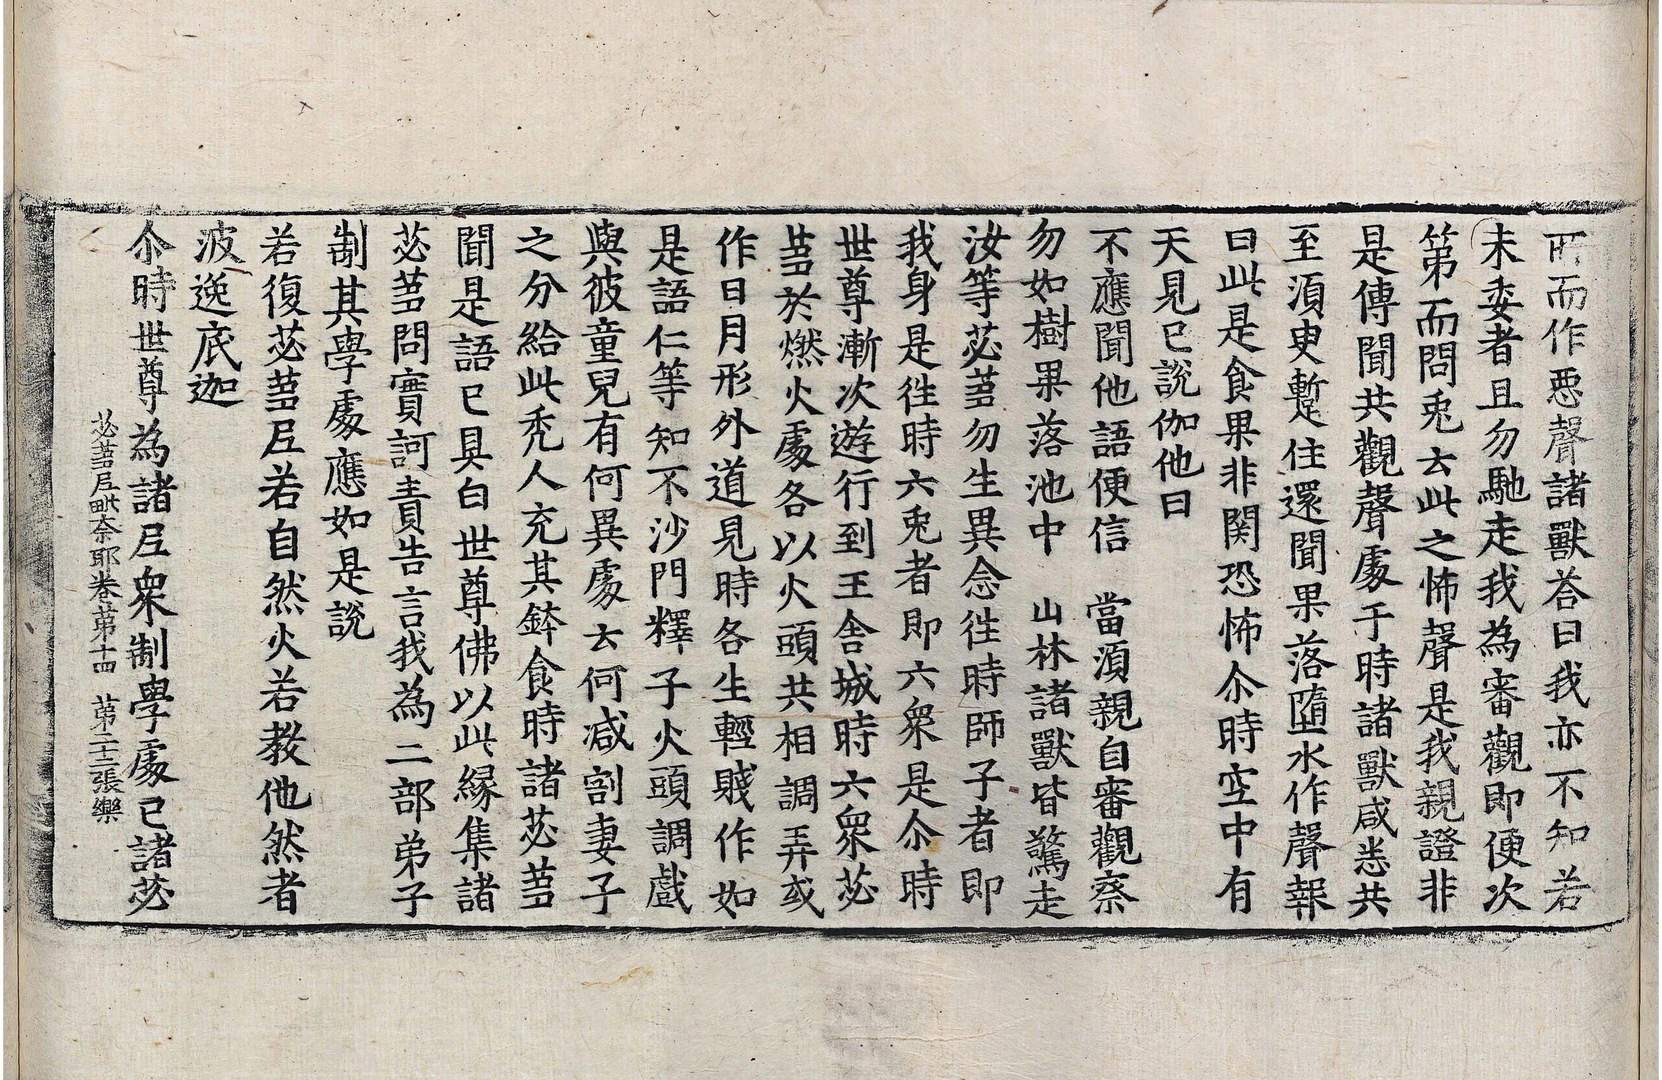 所而作悪聲諸獸荅曰我亦不知若
未委者且勿馳走我為審觀即便次
第而問兎云此之怖聲是我親證非
是傳聞共觀聲處于時諸獸咸悉共
至湏臾蹔住還聞果落墮水作聲報
曰此是食果非関恐怖尒時空中有
天見已說伽他曰
不應聞他語便信　當湏親自審觀察
勿如樹果落池中　山林諸獸皆驚走
汝等苾蒭勿生異念徃時師子者即
我身是徃時六兎者即六衆是尒時
世尊漸次遊行到王舍城時六衆苾
蒭於燃火處各以火頭共相調弄或
作日月形外道見時各生輕賤作如
是語仁等知不沙門釋子火頭調戲
與彼童兒有何異處云何减割妻子
之分給此禿人充其鉢食時諸苾蒭
聞是語已具白世尊佛以此縁集諸
苾蒭問實訶責告言我為二部弟子
制其學處應如是說
若復苾蒭尼若自然火若教他然者
波逸底迦
尒時世尊為諸尼衆制學處已諸苾
苾蒭尼毗奈耶卷苐十四　苐二十二張樂